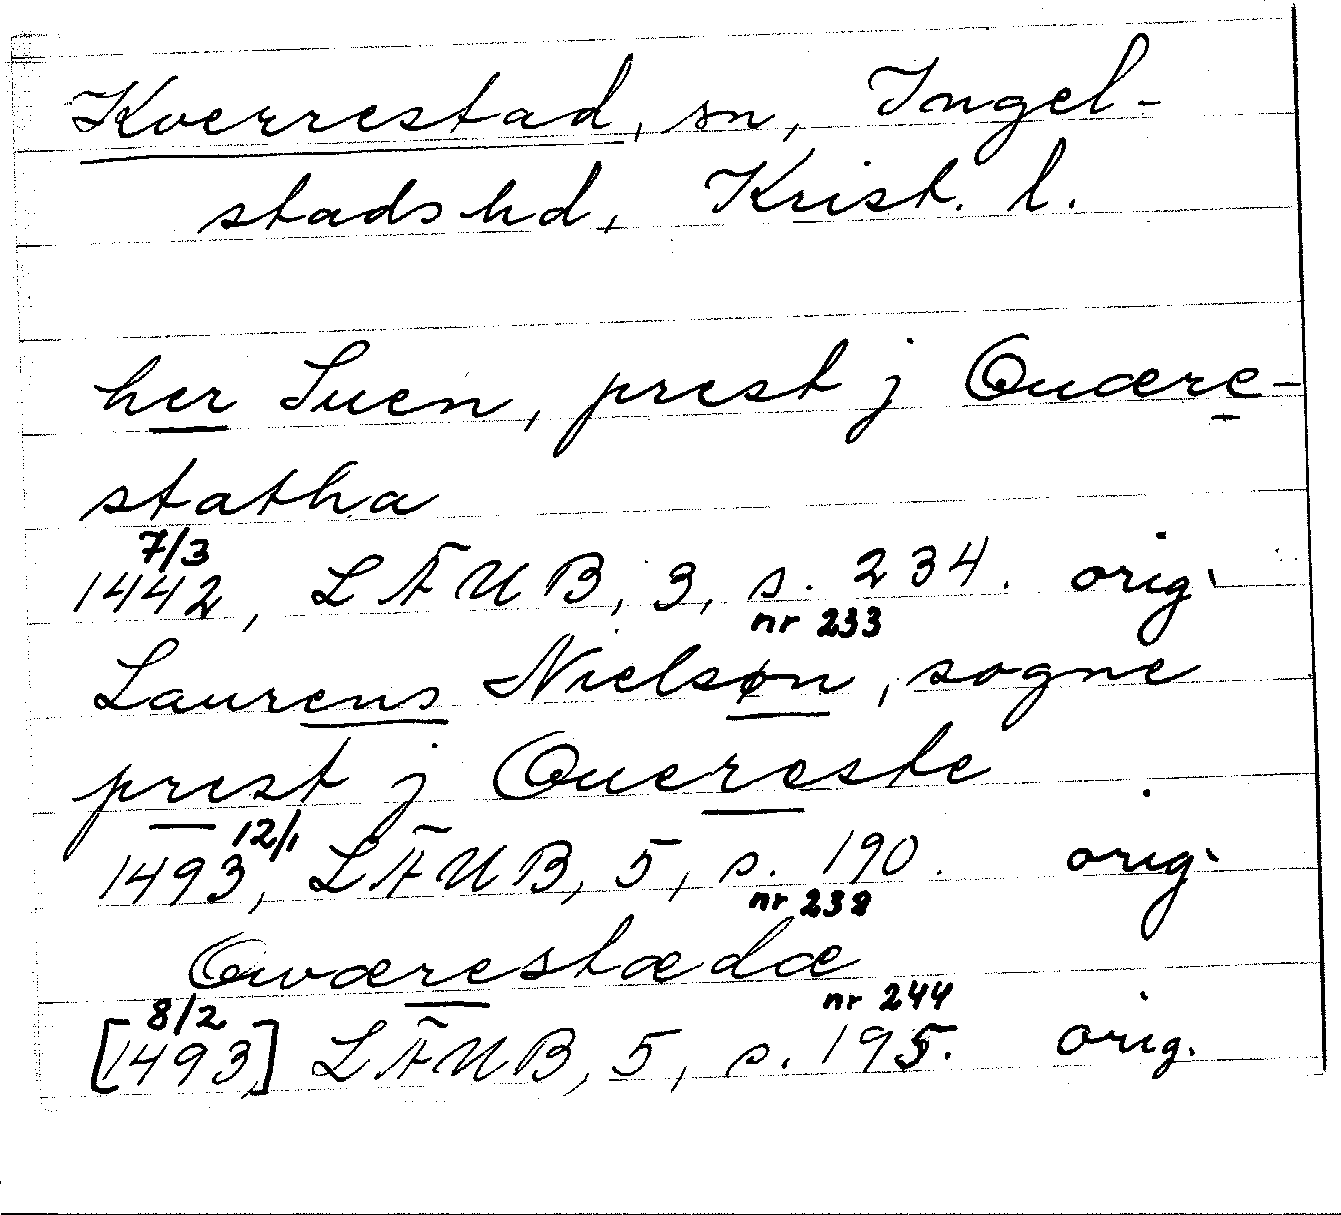 Kverrestad, sn, Ingel-
stads hd, Krist. l.
her Suen, prest j Quære-
statha
7/3
1442, LÄUB, 3, s. 234. orig.
nr 233
Laurens Nielsøn, sogne
prest j Quereste
12/1
1493, LÄUB, 5, s. 190. orig.
nr 238
Qwærestædæ
8/2 nr 244
[1493] LÄUB, 5, s. 195. orig.